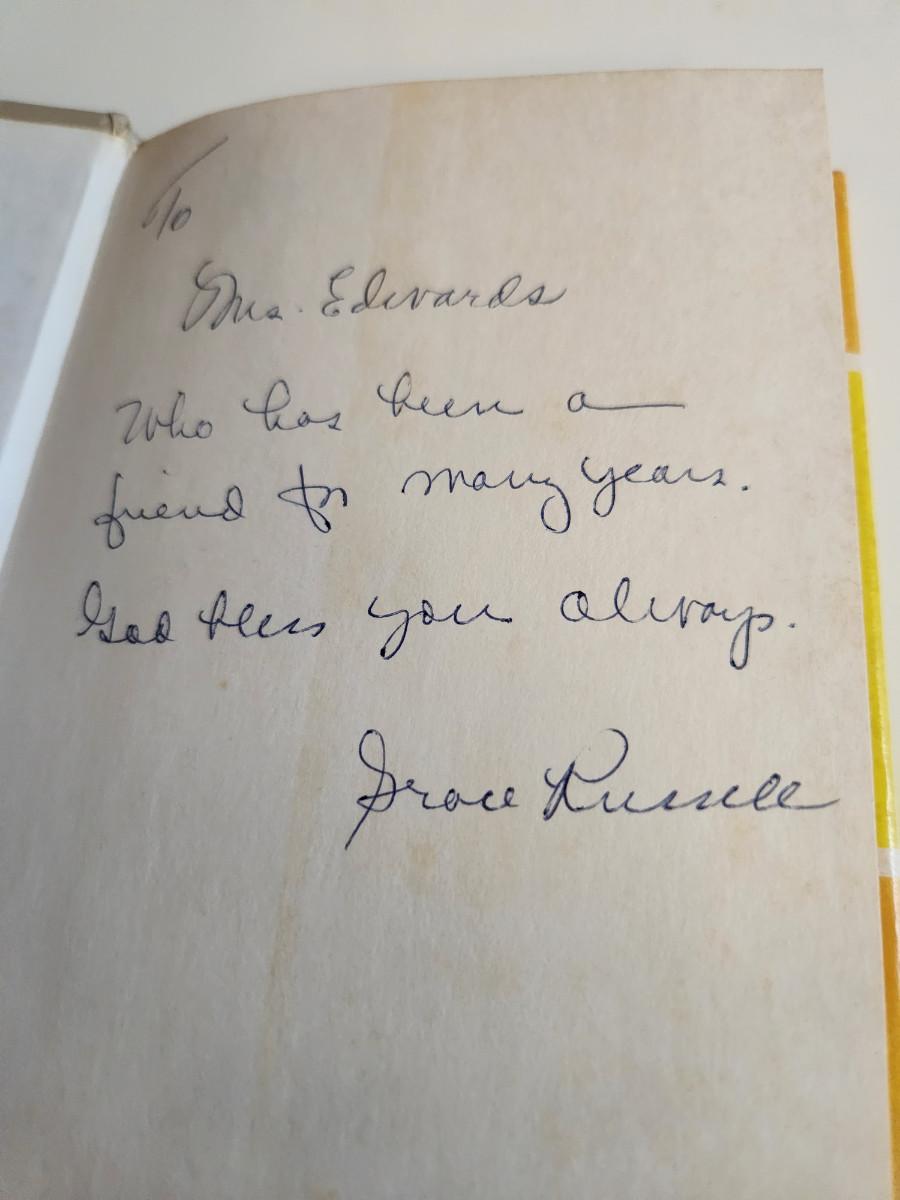 To
Mrs. Edwards
Who has been a
friend for many years.
God bless you always.
Grace Russell